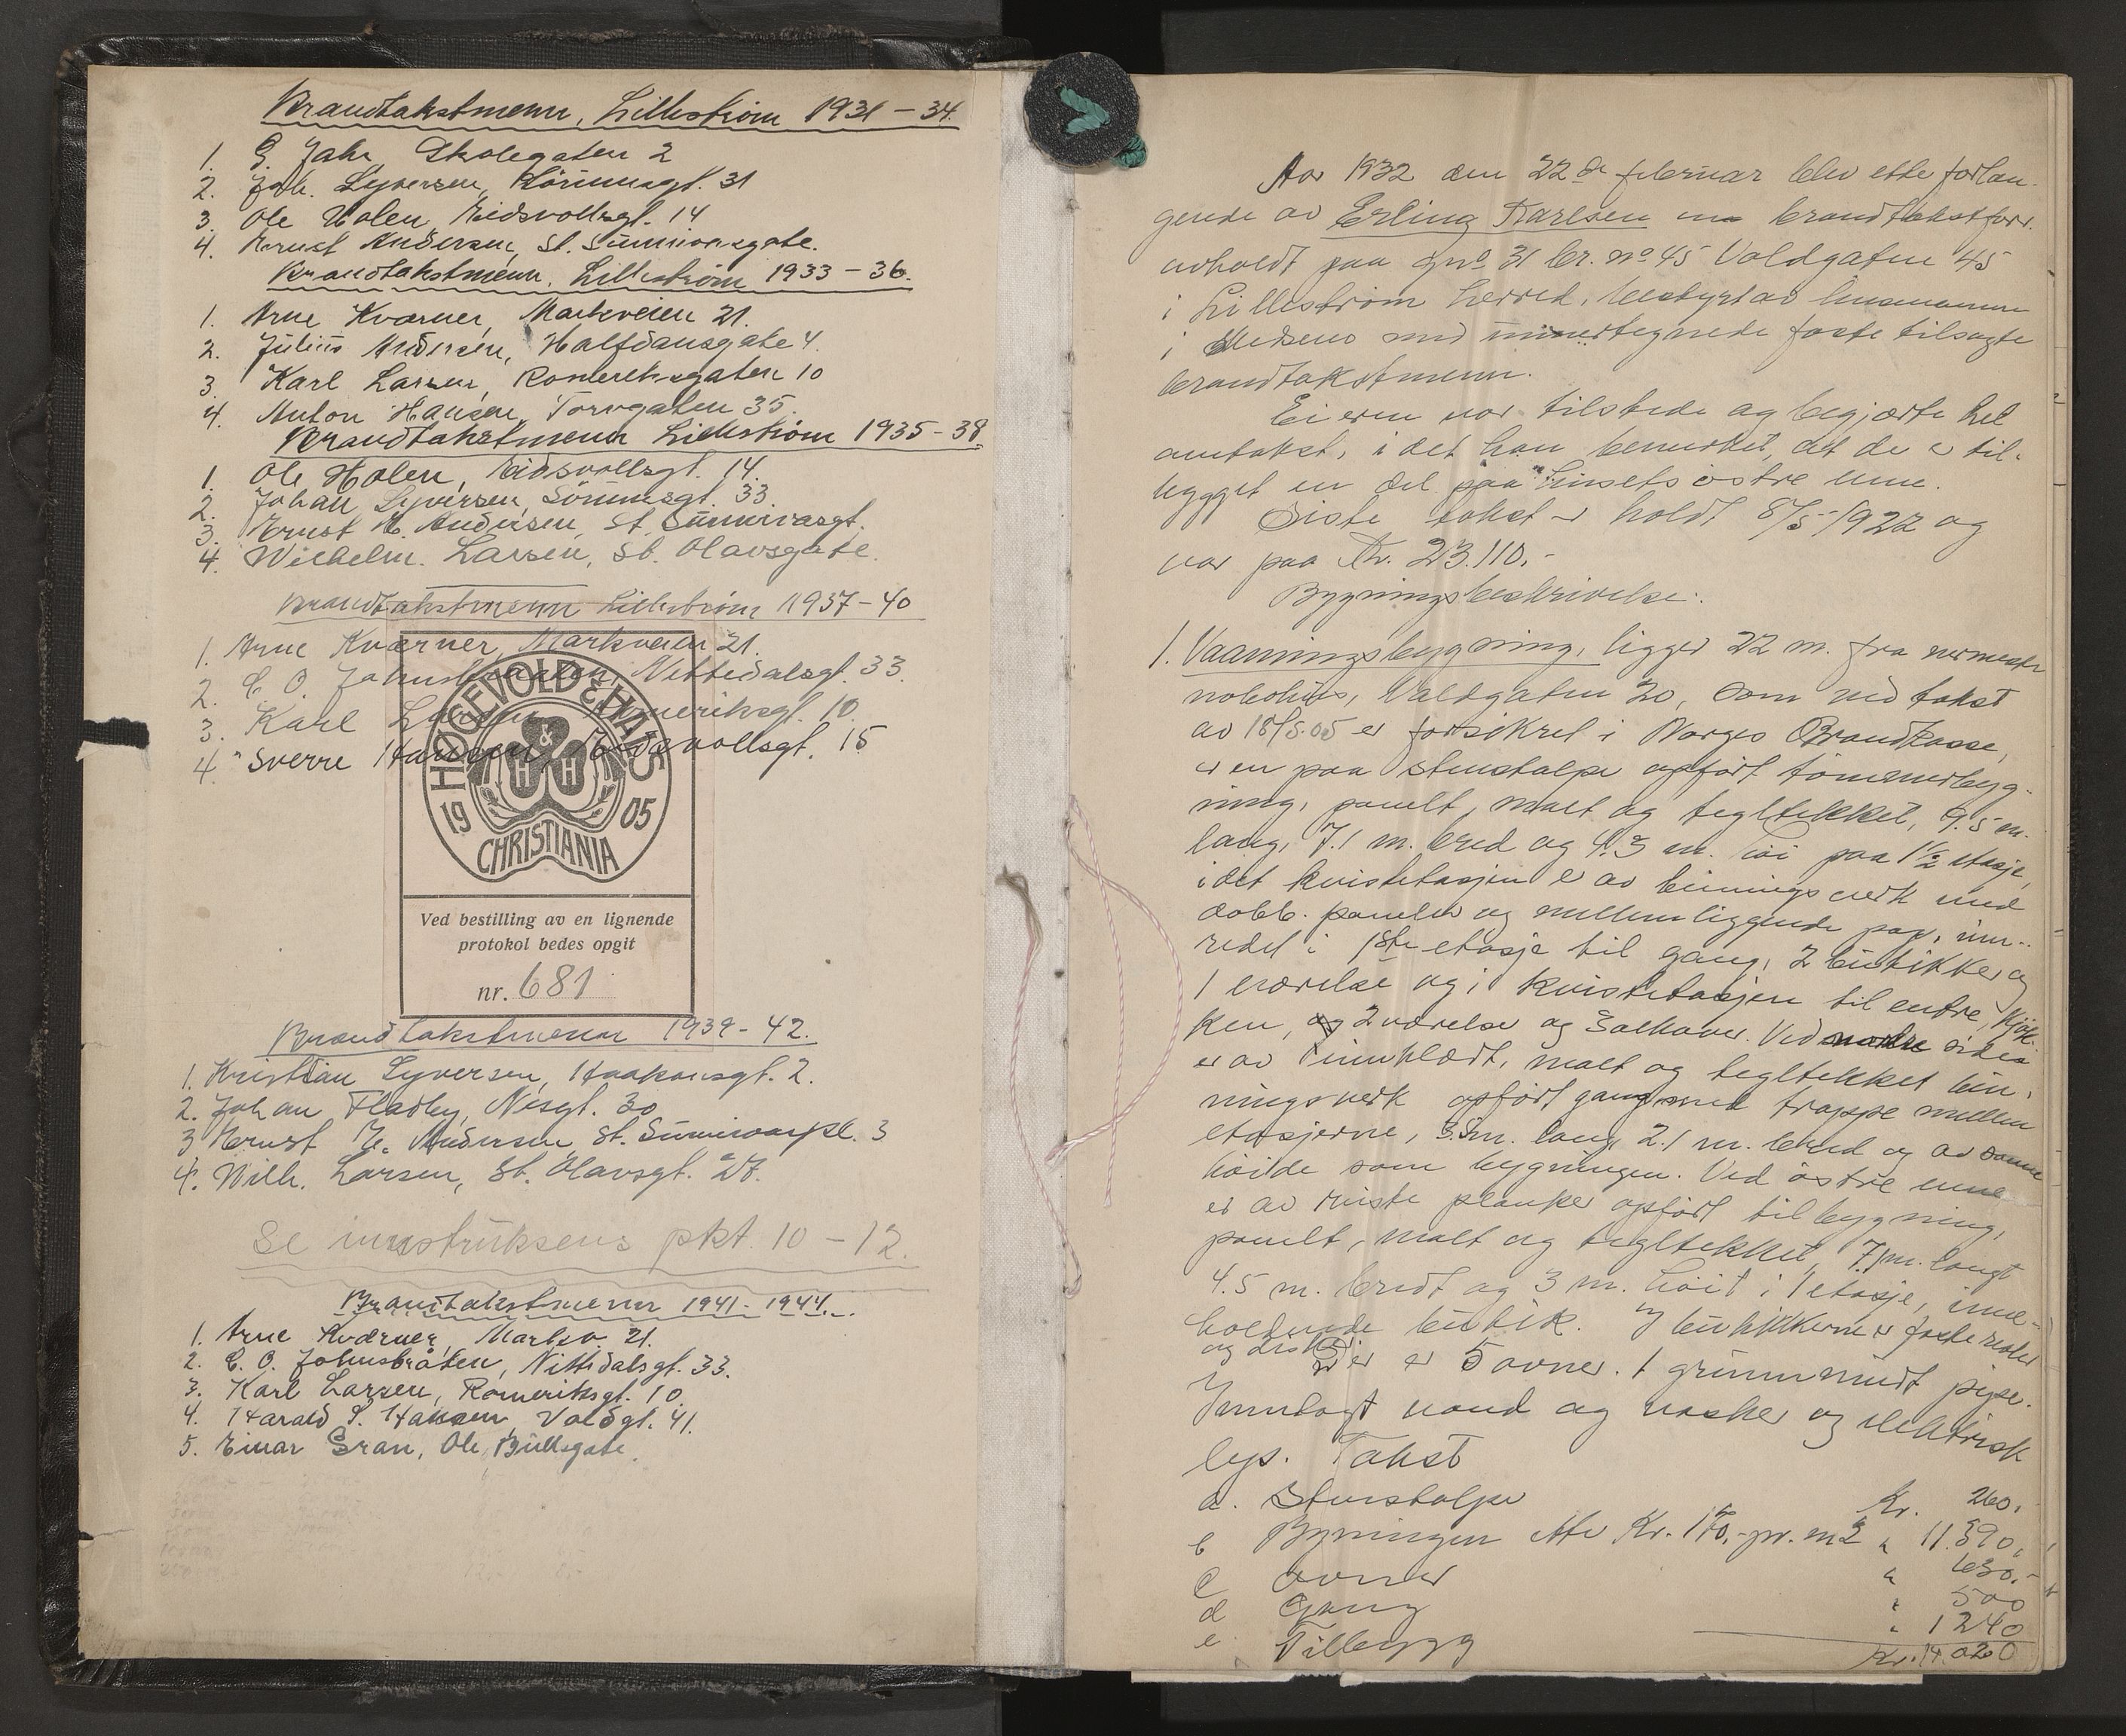 Brandtakstmenn, Lillestrøm 1931 – 34.
1. G. Jahr, Skolegaten 2
2. Joh. Syversen, Sörumsgt. 31
3. Ole Holen, Eidsvollsgt. 14
4. Ernst Andersen, St. Sunnivasgate.
Brandtakstmenn, Lillestrøm 1933 – 36.
1. Arne Kværner, Markveien 21.
2. Julius Andersen, Halfdansgate 4.
3. Karl Larsen, Romeriksgaten 10
4. Anton Hansen, Torvgaten 35.
Brandtakstmenn Lillestrøm 1935 – 38.
1. Ole Holen, Eidsvollsgt. 14.
2. Johan Syversen, Sörumsgt. 33.
3. Ernst H. Andersen, St. Sunnivasgt.
4. Wilhelm. Larsen, St. Olavsgate.
Brandtakstmenn Lillestrøm 1937 – 40
1. Arne Kværner, Markveien 21.
2. C. O. Johnsbraaten, Nittedalsgt. 33.
3. Karl Larsen Romeriksgt. 10.
4. Sverre Hansen, Eidsvollsgt. 15
HØGEVOLD & HALS
& H H
19 05
CHRISTIANIA
Ved bestilling av en lignende
protokol bedes opgit
nr. 681
Brandtakstmenn 1939 – 42.
1. Kristian Syversen, Haakonsgt. 2.
2. Johan Fladby, Nesgt. 30
3 Ernst H. Andersen, St. Sunnivaspl. 3
4. Wilh. Larsen, St. Olavsgt. 27.
Se instruksens pkt. 10 – 12.
Brandtakstmenn 1941 - 1944.
1. Arne Kværner, Markv. 21.
2. C. O. Johnsbråten, Nittedalsgt. 33.
3. Karl Larsen, Romeriksgt. 10.
4. Harald S. Hansen, Voldgt. 41.
5. Einar Gran, Ole Bullsgate.
Aar 1932 den 22de februar blev efter forlan-
gende av Erling Karlsen en brandtakstforr.
avholdt paa gno 31 br. no 45 Voldgaten 45
i Lillestrøm herred, bestyrt av lensmannen
i Skedsmo med undertegnede faste tilsagte
brandtakstmenn.
Eieren var tilstede og begjærte hel
omtakst, i det han bemerket, at de er til-
bygget en del paa husets østre ende.
Siste takst er holdt 8/5 1922 og
var paa Kr. 23.110.-
Bygningsbeskrivelse:
1. Vaaningsbygning, ligger 22 m. fra nermeste
nabohus, Voldgaten 20, som ved takst
av 18/5.05 er forsikret i Norges Brandkasse,
er en paa stenstolpe opført tömmerbyg-
ning, panelt, malt og tegltekket, 9.5 m.
lang, 7.1 m. bred og 4.3 m. høi paa 1½ etasje,
idet kvistetasjen er av bindingsverk med
dobb. paneler og mellemliggende pap, inn-
redet i 1ste etasje til gang, 2 butikker og
1 værelse og i kvistetasjen til entre, kjök-
ken, og 2 værelser og 3 alkover. Ved side
er av innklædt, malt og tegltekket bin-
ningsverk opført gang med trappe mellem
etasjerne, 3.3 m. lang, 2.1 m. bred og av samme
höide som bygningen. Ved østre ende
er av reiste planker opført tilbygning,
panelt, malt og tegltekket, 7.1 m. langt
4.5 m. bredt og 3 m. høit i 1 etasje, inne-
holdende butik. I butikkerne er faste reoler
og disker
Der er 5 ovner. 1 grunnmurt pipe.
Innlagt vand og vasker og elektrisk
lys. Takst
a. Stenstolpe Kr. 260.
b Bygningen efter Kr. 170.- pr. m2 " 11.390,
c ovner " 630.-
d Gang " 500
e. Tilbygg " 1240
Kr. 14.020